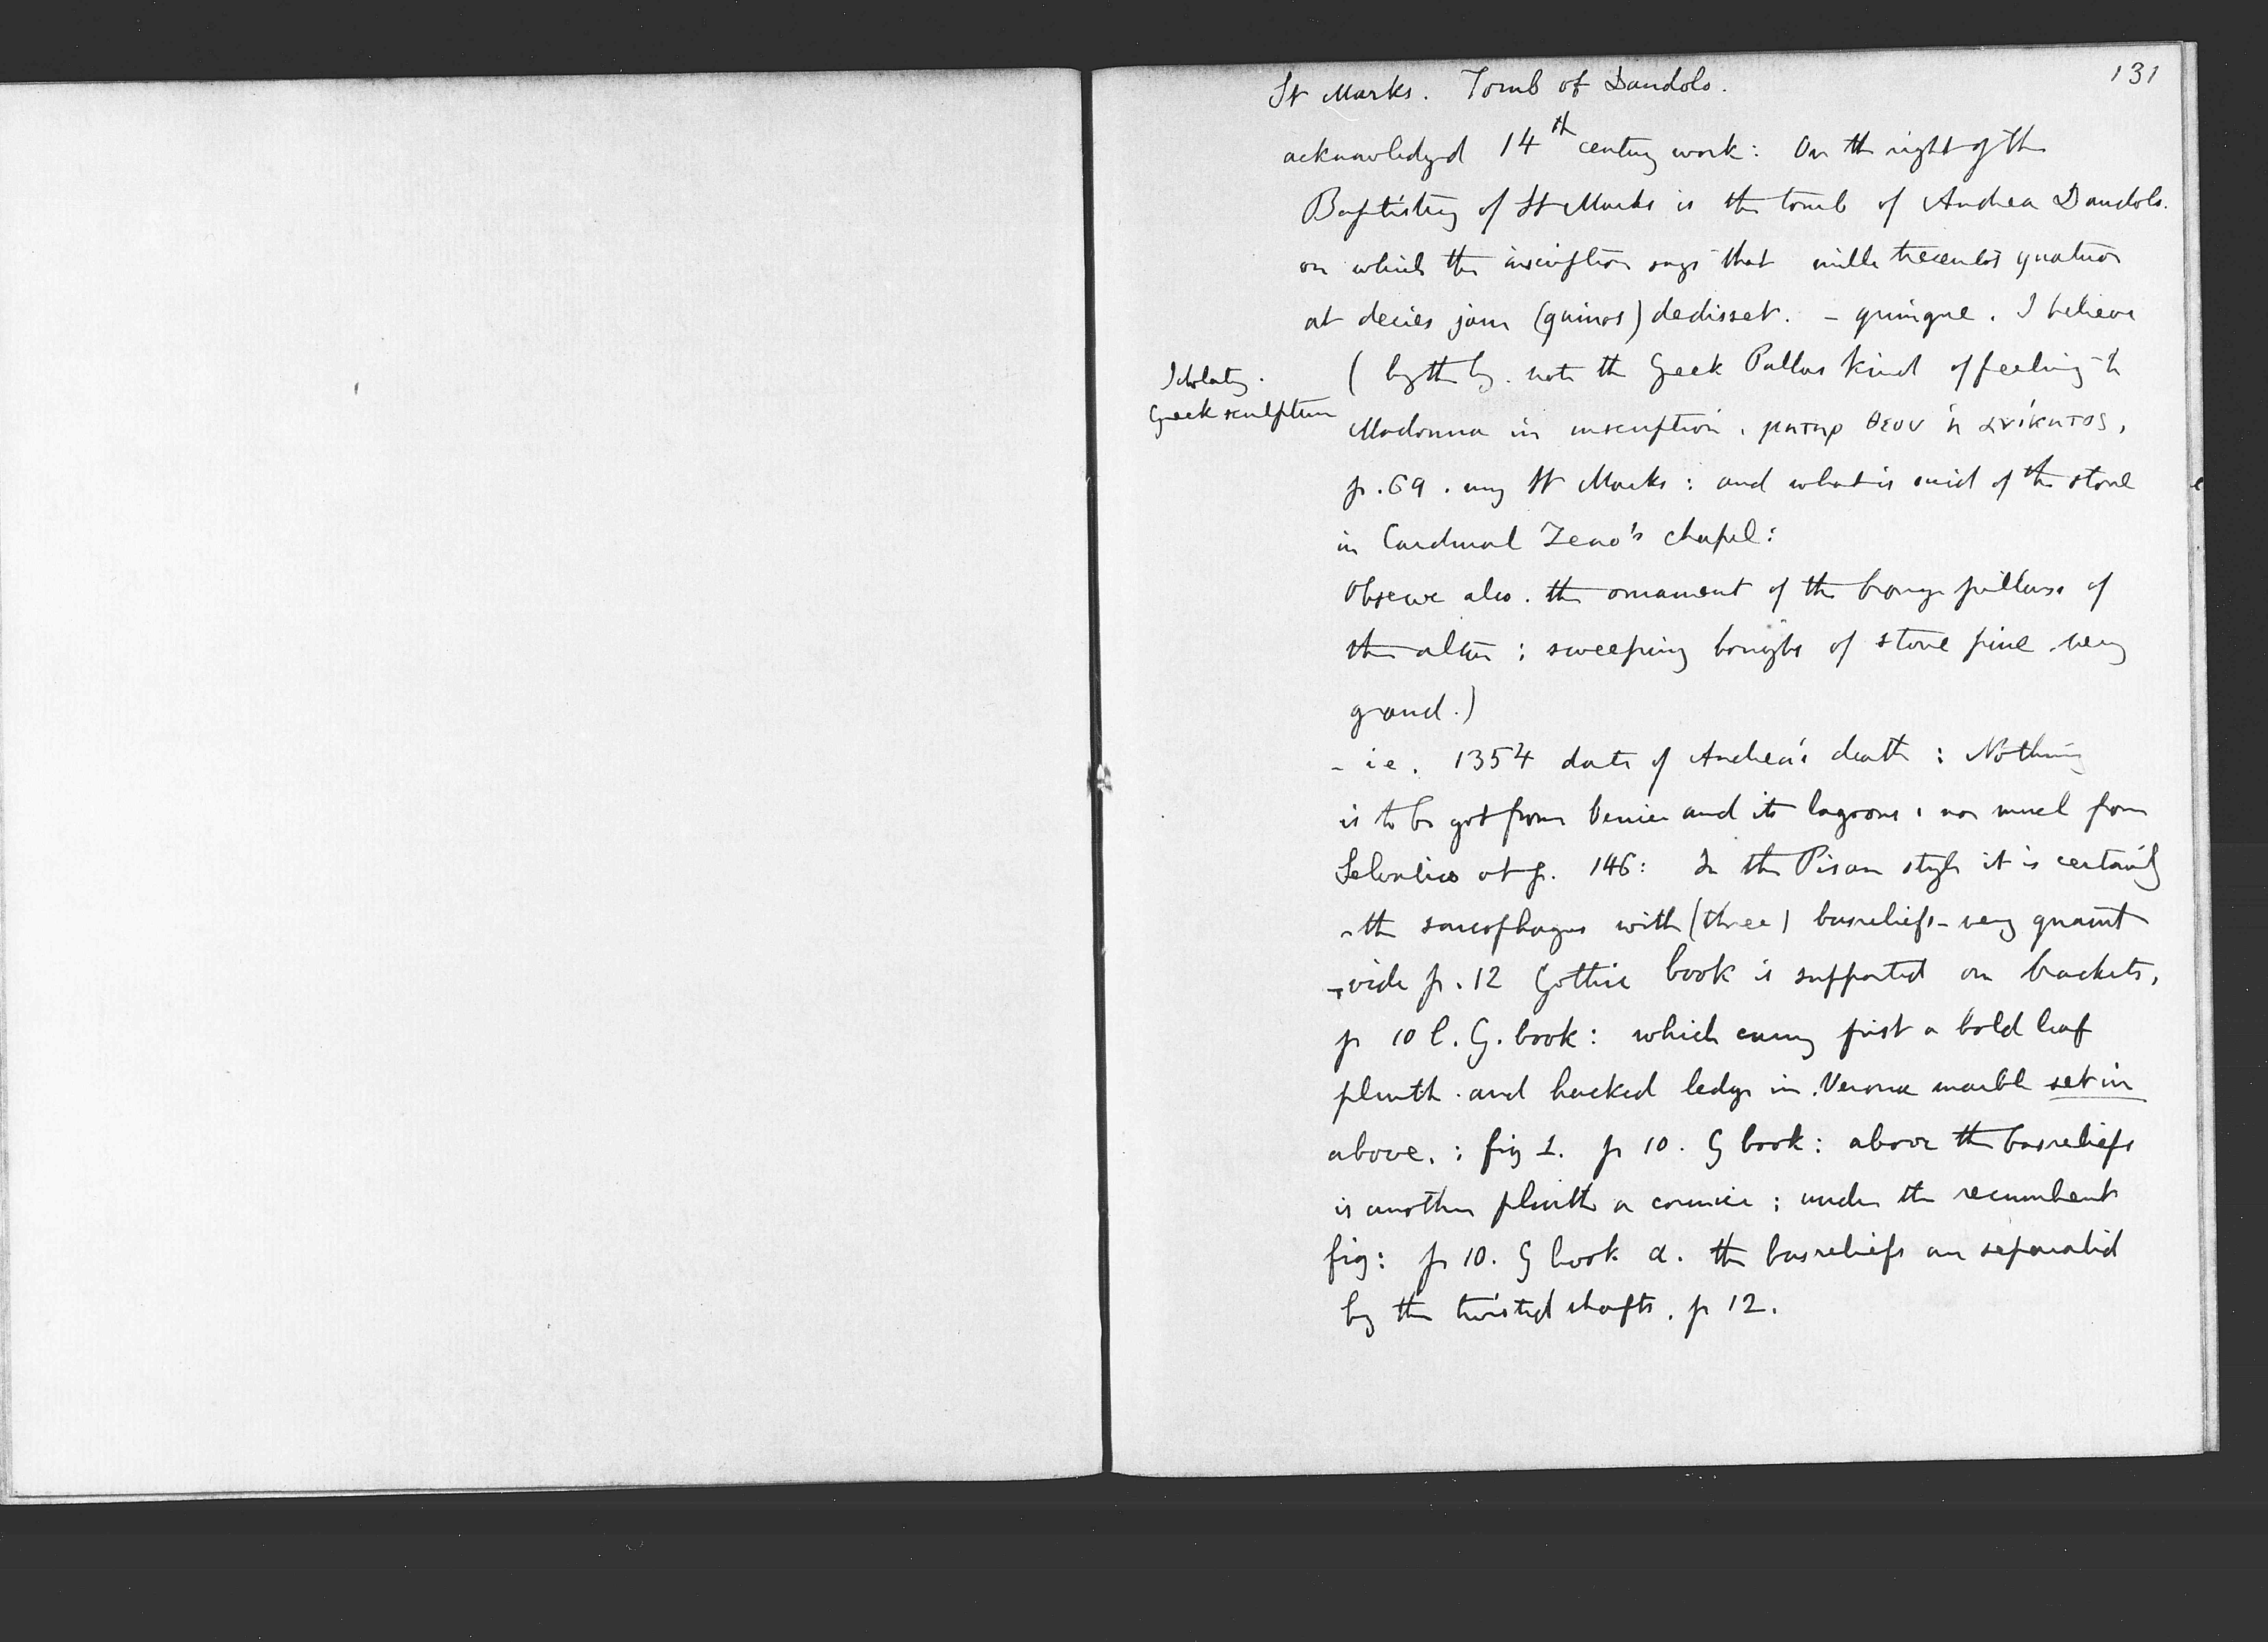 131
St Marks. Tomb of Dandolo.
acknowledged 14th century work: On the right of the
Baptistery of St Marks is the tomb of Andrea Dandolo.
on which the inscription says that mille trecentos quatuor
at decies jam (quinos) dedisset. - quinque. I believe
Idolatry.
Greek sculpture
( by the by. note the Greek Pallas kind of feeling to
Madonna in inscription. ματηρ θεου ἡ ανίκητος,
p. 69. my St Marks: and what is said of the stone
in Cardinal Zeno's chapel:
Observe also. the ornament of the bronze pillars of
the altar; sweeping boughs of stone pine. very
grand.)
- ie. 1354 date of Andrea's death: Nothing
is to be got from Venice and its lagoons, nor much from
Selvatico at p. 146: In the Pisan style it is certainly
- the sarcophagus with (three) basreliefs - very quaint
- vide p. 12 Gothic book is supported on brackets,
p 10 l. G. book: which carry first a bold leaf
plinth. and backed ledge in Verona marble set in
above.: fig 1. p 10. G book: above the basreliefs
is another plinth or cornice; under the recumbent
fig: p 10. G book a. the basreliefs are separated
by the twisted shafts. p 12.